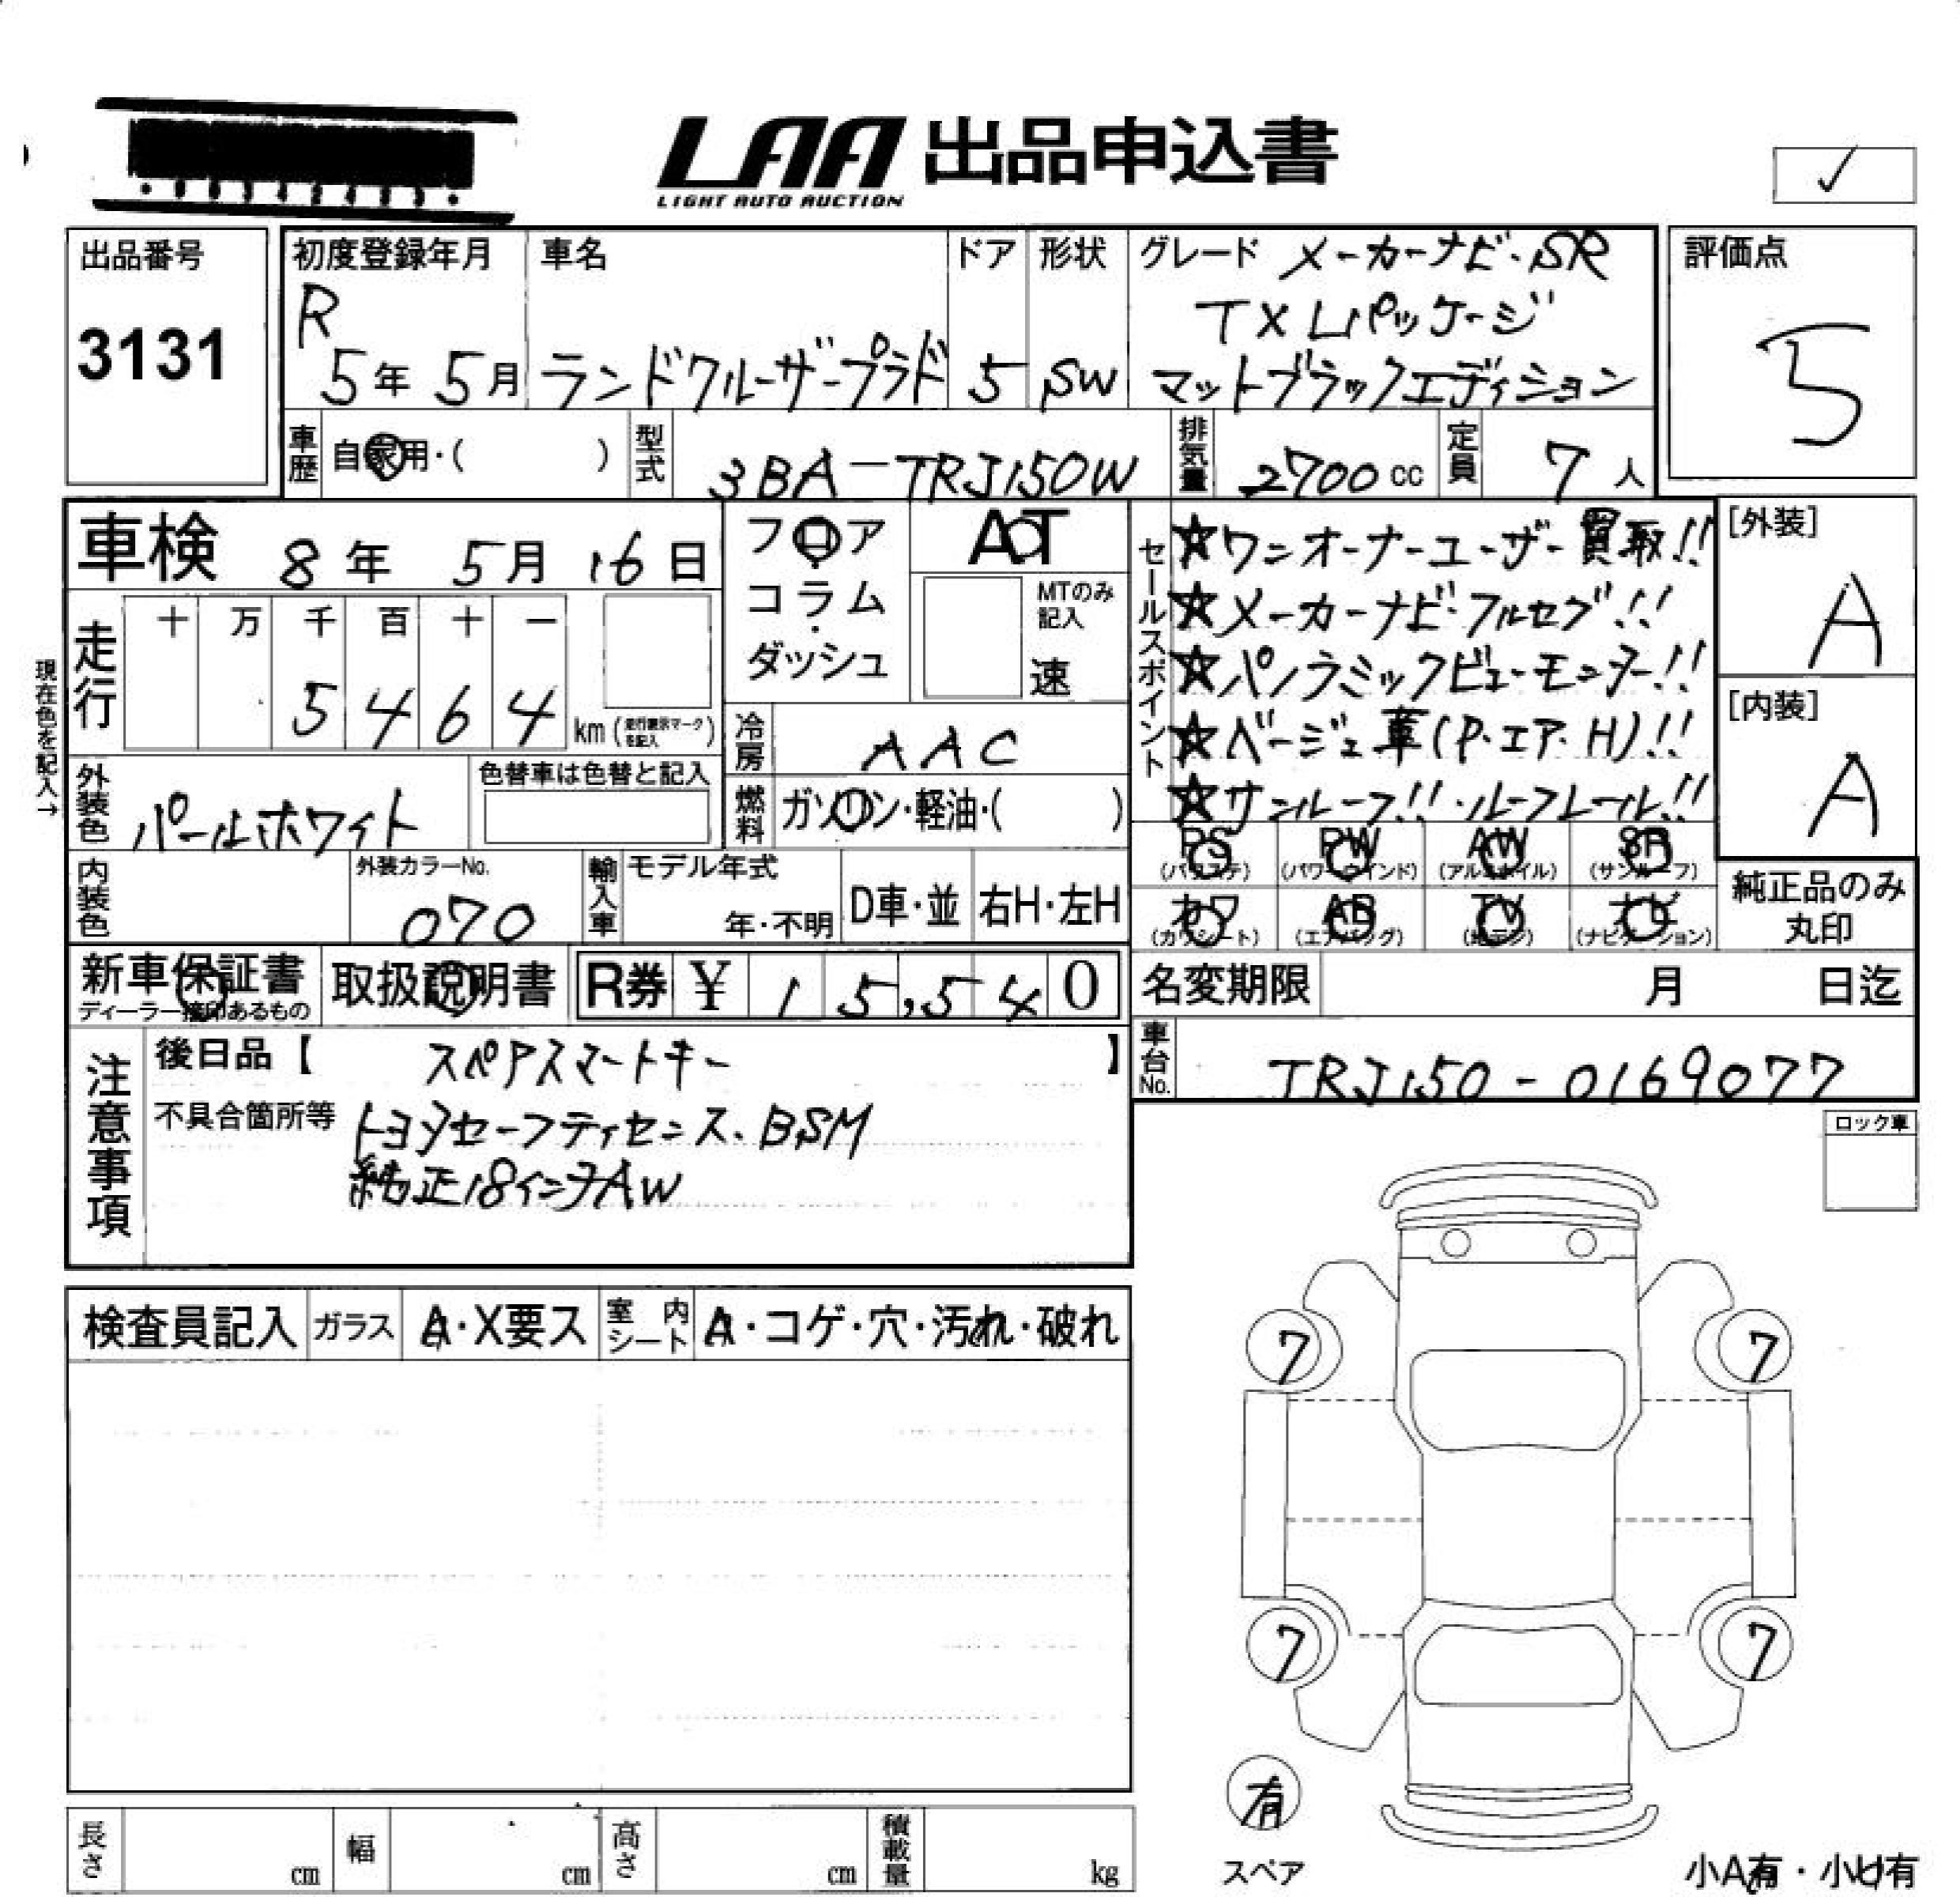 LAA 出品申込書
LIGHT AUTO AUCTION
✓
出品番号
3131
初度登録年月
R
5年 5月
車名
ランドクルーザープラド
ドア
5
形状
SW
グレード メーカーナビ・SR
TX Lパッケージ
マットブラックエディション
評価点
5
車歴
自家用・( )
型式
3BA-TRJ150W
排気量
2700cc
定員
7人
車検 8年 5月 16日
フロア
コラム・
ダッシュ
AT
MTのみ
記入
速
セールスポイント
☆ワンオーナーユーザー買取!!
☆メーカーナビ・フルセグ!!
☆パノラミックビューモニター!!
☆ベージュ革(P.エア.H)!!
☆サンルーフ!!・ルーフレール!!
[外装]
A
[内装]
A
現在色を記入→
走行
十 万 千 百 十 一
5 4 6 4
km(走行表示マークを記入)
冷房
AAC
外装色
パールホワイト
色替車は色替と記入
燃料
ガソリン・軽油・( )
PS (パワステ)
PW (パワーウインド)
AW (アルミホイル)
SR (サンルーフ)
カワ (カワシート)
AB (エアバッグ)
TV (地デジ)
ナビ (ナビゲーション)
純正品のみ
丸印
内装色
外装カラーNo.
070
輸入車
モデル年式
年・不明
D車・並
右H・左H
新車保証書
ディーラー捺印あるもの
取扱説明書
R券 ¥ 15,540
名変期限 月 日迄
車台No.
TRJ150-0169077
注意事項
後日品【 スペアスマートキー 】
不具合箇所等 トヨタセーフティセンス.BSM
純正18インチAW
ロック車
検査員記入
ガラス
A・X要ス
室内シート
A・コゲ・穴・汚れ・破れ
7
7
7
7
有
スペア
長さ cm
幅 cm
高さ cm
積載量 kg
小A有・小U有